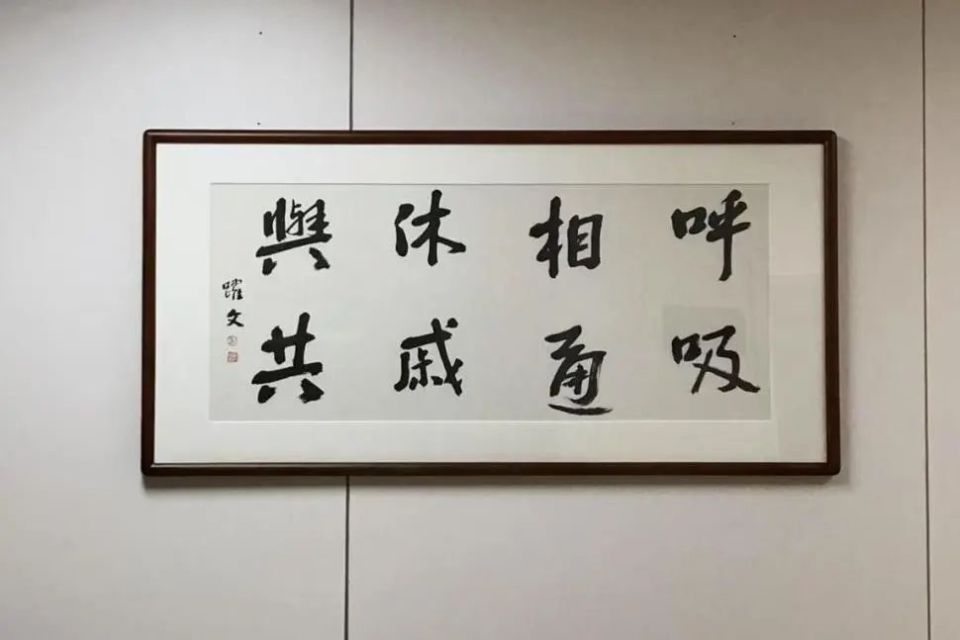 呼吸
相通
休戚
與共
躍文